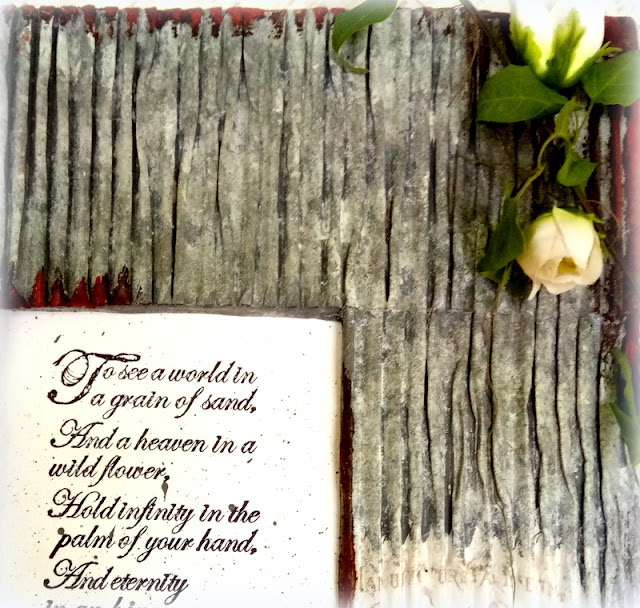 To see a world in
a grain of sand,
And a heaven in a
wild flower,
Hold infinity in the
palm of your hand,
And eternity
in an